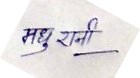 मधु रानी